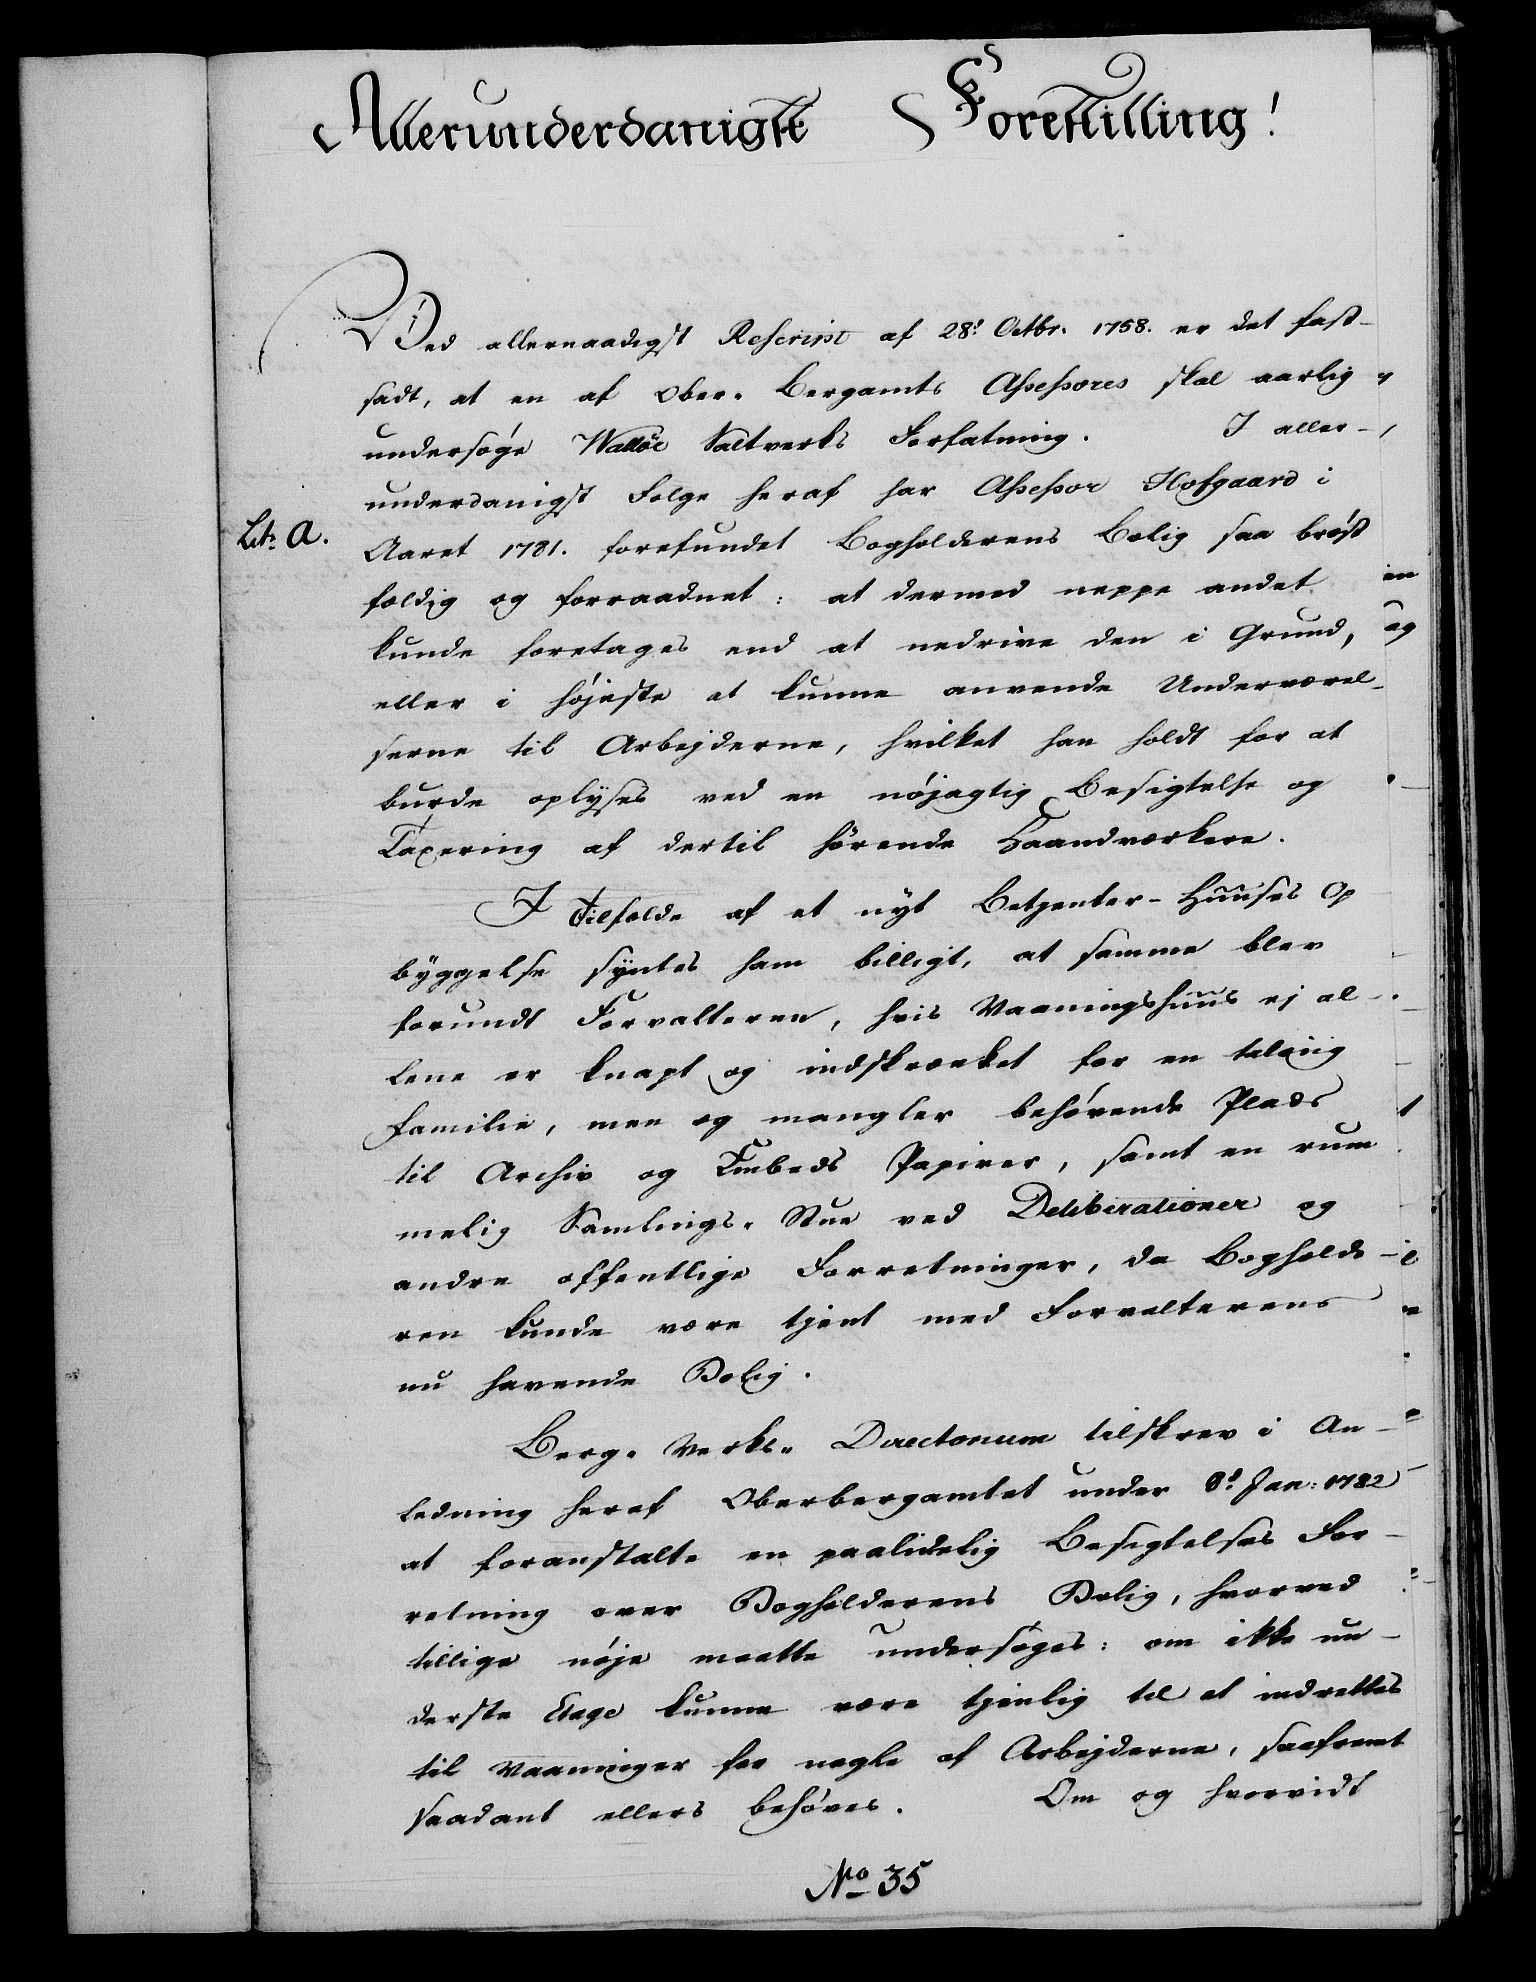 Allerunderdanigste Forestilling!
Ved allernaadigst Rescript af 28: Octbr. 1758. er det fast-
sadt, at en af Ober-Bergamts Assessores skal aarlig
undersøge Walløe Saltverks Forfatning. I aller-
underdanigst Følge heraf har Assessor Hofgaard i
Litr. A.
Aaret 1781. forefundet Bogholderens Bolig saa brøst
fældig og forraadnet: at dermed neppe andet
kunde foretages end at nedrive den i Grund,
eller i højeste at kunne anvende Underværel-
serne til Arbejderne, hvilket han holdt for at
burde oplyses ved en nøjagtig Besigtelse og
Taxering af dertil hørende Haandværkere.
I Tilfælde af et nyt Betjenter-Huuses Op
byggelse syntes ham billigt, at samme blev
forundt Forvalteren, hvis Vaaningshuus ej al-
lene er knapt og indskrænket for en talrig
Familie, men og mangler behøvende Plads
til Archiv og Embeds Papirer, samt en rum
melig Samlings-Stue ved Deliberationer og
andre offentlige Forretninger, da Bogholde-
ren kunde være tjent med Forvalterens
nu havende Bolig.
Berg-Verks-Directorium tilskrev i An-
ledning heraf Oberbergamtet under 8: Jan: 1782
at foranstalte en paalidelig Besigtelses For-
retning over Bogholderens Bolig, hvorved
tillige nøje maatte undersøges: om ikke un-
derste Etage kunne være tjenlig til at indrettes
til Vaaninger for nogle af Arbejderne, saafremt
saadant ellers behøves. Om og hvorvidt
No 35